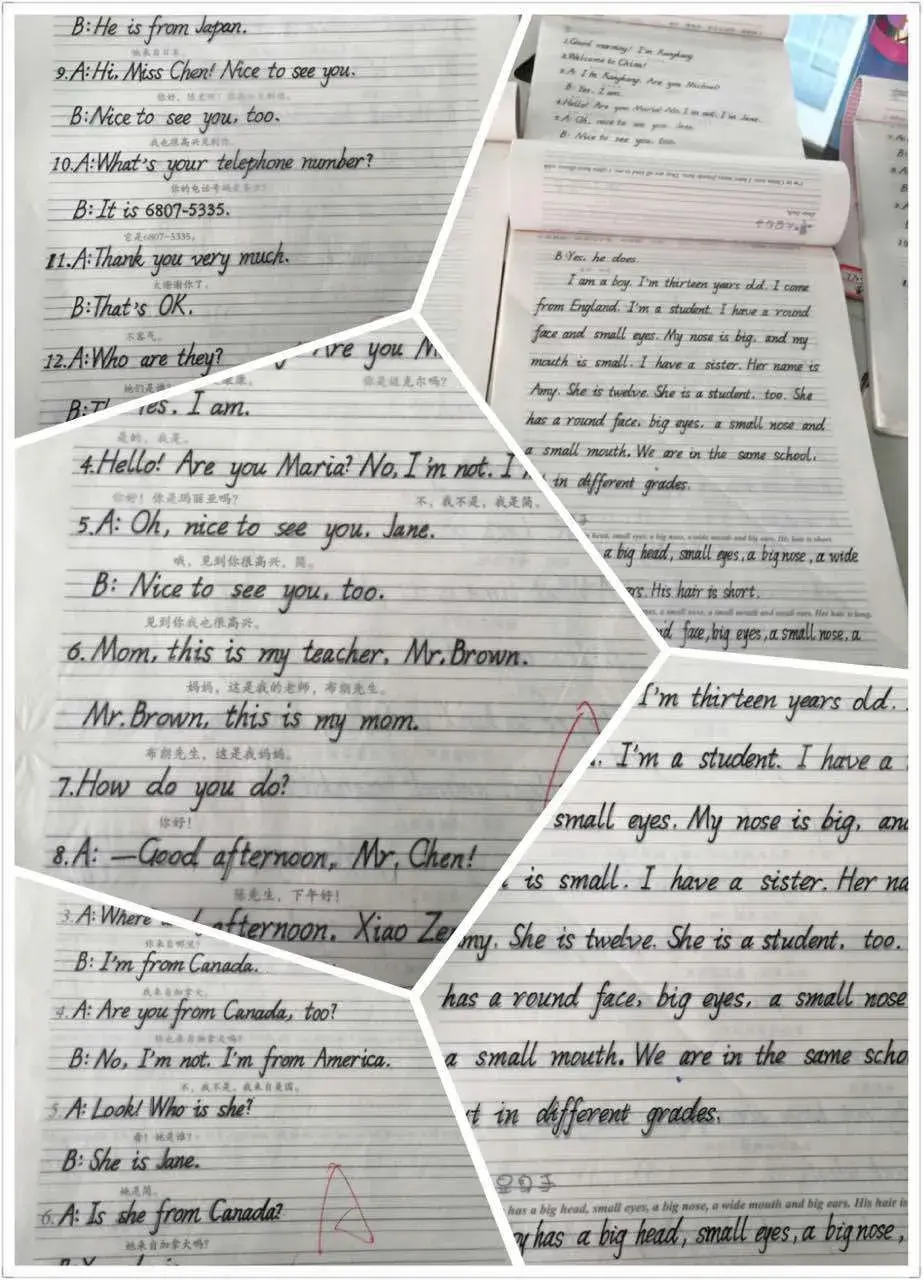 B: He is from Japan.
她来自日本。
9. A: Hi, Miss Chen! Nice to see you.
B: Nice to see you, too.
10. A: What's your telephone number?
B: It is 6807-5335.
它是6807-5335。
11. A: Thank you very much.
太谢谢你了。
B: That's OK.
不客气。
12. A: Who are they?
她们是谁?
1. Good morning! I'm Kangkang.
2. Welcome to China!
3. A: I'm Kangkang. Are you Michael?
B: Yes, I am.
4. Hello! Are you Maria? No, I'm not. I'm Jane.
5. A: Oh, nice to see you, Jane.
B: Nice to see you, too.
B: Yes, he does.
I am a boy. I'm thirteen years old. I come
from England. I'm a student. I have a round
face and small eyes. My nose is big, and my
mouth is small. I have a sister. Her name is
Amy. She is twelve. She is a student, too. She
has a round face, big eyes, a small nose and
a small mouth. We are in the same school,
in different grades.
head, small eyes, a big nose, a wide mouth and big ears. His hair is short.
a big head, small eyes, a big nose, a wide
His hair is short.
eyes, a small nose, a small mouth and small ears. Her hair is long.
face, big eyes, a small nose, a
Are you
你是迈克尔吗?
I am.
是的，我是。
4. Hello! Are you Maria? No, I'm not. I
你好! 你是玛丽亚吗? 不，我不是，我是简。
5. A: Oh, nice to see you, Jane.
哦，见到你很高兴，简。
B: Nice to see you, too.
见到你我也很高兴。
6. Mom, this is my teacher, Mr. Brown.
妈妈，这是我的老师，布朗先生。
Mr. Brown, this is my mom.
布朗先生，这是我妈妈。
7. How do you do?
你好!
8. A: —Good afternoon, Mr. Chen!
陈先生，下午好!
afternoon, Xiao
3. A: Where
你来自哪里?
B: I'm from Canada.
我来自加拿大。
4. A: Are you from Canada, too?
你也来自加拿大吗?
B: No, I'm not. I'm from America.
不，我不是。我来自美国。
5. A: Look! Who is she?
看! 她是谁?
B: She is Jane.
她是简。
6. A: Is she from Canada?
她来自加拿大吗?
A
I'm thirteen years old.
I'm a student. I have a
small eyes. My nose is big, and
is small. I have a sister. Her
She is twelve. She is a student, too.
has a round face, big eyes, a small nose
a small mouth. We are in the same
in different grades.
has a big head, small eyes, a big nose, a wide mouth and big ears. His hair is
has a big head, small eyes, a big nose,